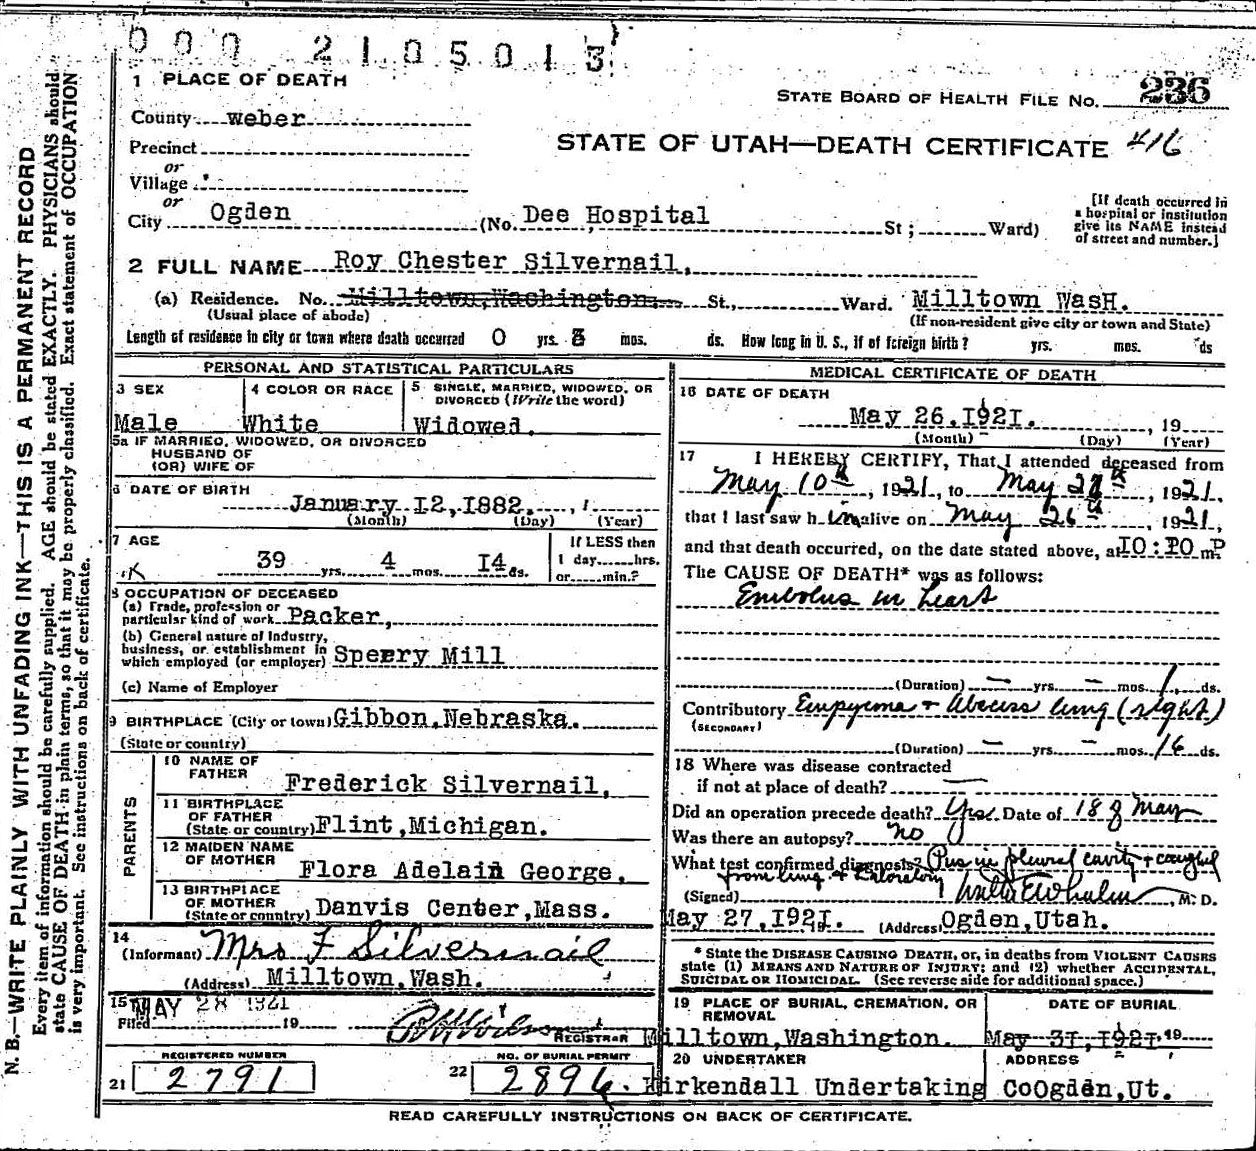 000 2105013
1 PLACE OF DEATH
STATE BOARD OF HEALTH FILE No. 236
County Weber
STATE OF UTAH—DEATH CERTIFICATE 416
Precinct
or
Village
or
City Ogden (No. Dee Hospital St; Ward)
[If death occurred in a hospital or institution give its NAME instead of street and number.]
2 FULL NAME Roy Chester Silvernail,
(a) Residence. No. Milltown, Washington St., Ward. Milltown WasH.
(Usual place of abode) (If non-resident give city or town and State)
Length of residence in city or town where death occurred 0 yrs. 3 mos. ds. How long in U. S., if of foreign birth? yrs. mos. ds
PERSONAL AND STATISTICAL PARTICULARS
3 SEX 4 COLOR OR RACE 5 SINGLE, MARRIED, WIDOWED, OR DIVORCED (Write the word)
Male White Widowed.
5a IF MARRIED, WIDOWED, OR DIVORCED
HUSBAND OF
(OR) WIFE OF
6 DATE OF BIRTH
January 12, 1882.
(Month) (Day) (Year)
7 AGE If LESS then
39 yrs. 4 mos. 14 ds. 1 day hrs.
or min.?
8 OCCUPATION OF DECEASED
(a) Trade, profession or particular kind of work Packer,
(b) General nature of Industry, business, or establishment in which employed (or employer) Sperry Mill
(c) Name of Employer
9 BIRTHPLACE (City or town) Gibbon, Nebraska.
(State or country)
PARENTS
10 NAME OF FATHER Frederick Silvernail,
11 BIRTHPLACE OF FATHER (State or country) Flint, Michigan.
12 MAIDEN NAME OF MOTHER Flora Adelain George,
13 BIRTHPLACE OF MOTHER (State or country) Danvis Center, Mass.
14
(Informant) Mrs F Silvernail
(Address) Milltown, Wash.
15 MAY 28 1921
Filed 19 REGISTRAR
REGISTERED NUMBER NO. OF BURIAL PERMIT
21 2791 22 2896.
MEDICAL CERTIFICATE OF DEATH
16 DATE OF DEATH
May 26, 1921. , 19
(Month) (Day) (Year)
17 I HEREBY CERTIFY, That I attended deceased from
May 10th, 1921, to May 27th, 1921.
that I last saw h im alive on May 26th, 1921,
and that death occurred, on the date stated above, at 10:10 m P
The CAUSE OF DEATH* was as follows:
Embolus in heart
(Duration) — yrs. — mos. 1, ds.
Contributory Empyema + Abcess lung (right)
(SECONDARY)
(Duration) — yrs. — mos. 16 ds.
18 Where was disease contracted
if not at place of death? —
Did an operation precede death? Yes. Date of 18 of May
Was there an autopsy? no
What test confirmed diagnosis? Pus in pleural cavity + coughed
from lung. + Laboratory
(Signed) , M. D.
May 27, 1921. (Address) Ogden, Utah.
* State the DISEASE CAUSING DEATH, or, in deaths from VIOLENT CAUSES
state (1) MEANS AND NATURE OF INJURY; and (2) whether ACCIDENTAL,
SUICIDAL OR HOMICIDAL. (See reverse side for additional space.)
19 PLACE OF BURIAL, CREMATION, OR REMOVAL DATE OF BURIAL
Milltown, Washington. May 31, 1921. 19
20 UNDERTAKER ADDRESS
Kirkendall Undertaking Co Ogden, Ut.
READ CAREFULLY INSTRUCTIONS ON BACK OF CERTIFICATE.
N. B.—WRITE PLAINLY WITH UNFADING INK—THIS IS A PERMANENT RECORD
Every item of information should be carefully supplied. AGE should be stated EXACTLY. PHYSICIANS should
state CAUSE OF DEATH in plain terms, so that it may be properly classified. Exact statement of OCCUPATION
is very important. See instructions on back of certificate.